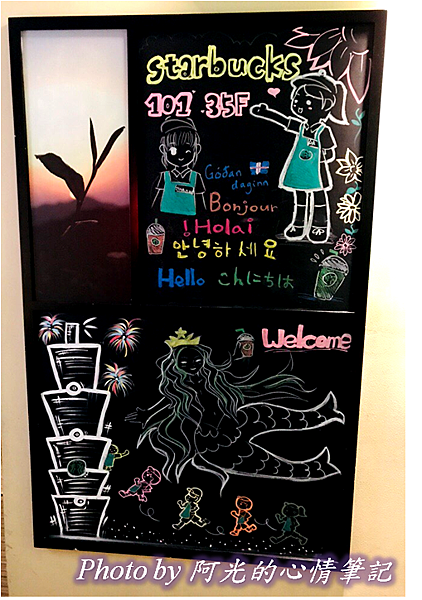 starbucks
101 35F
Góðan
daginn
Bonjour
¡Hola!
안녕하세요
Hello こんにちは
Welcome
Photo by 阿光的心情筆記